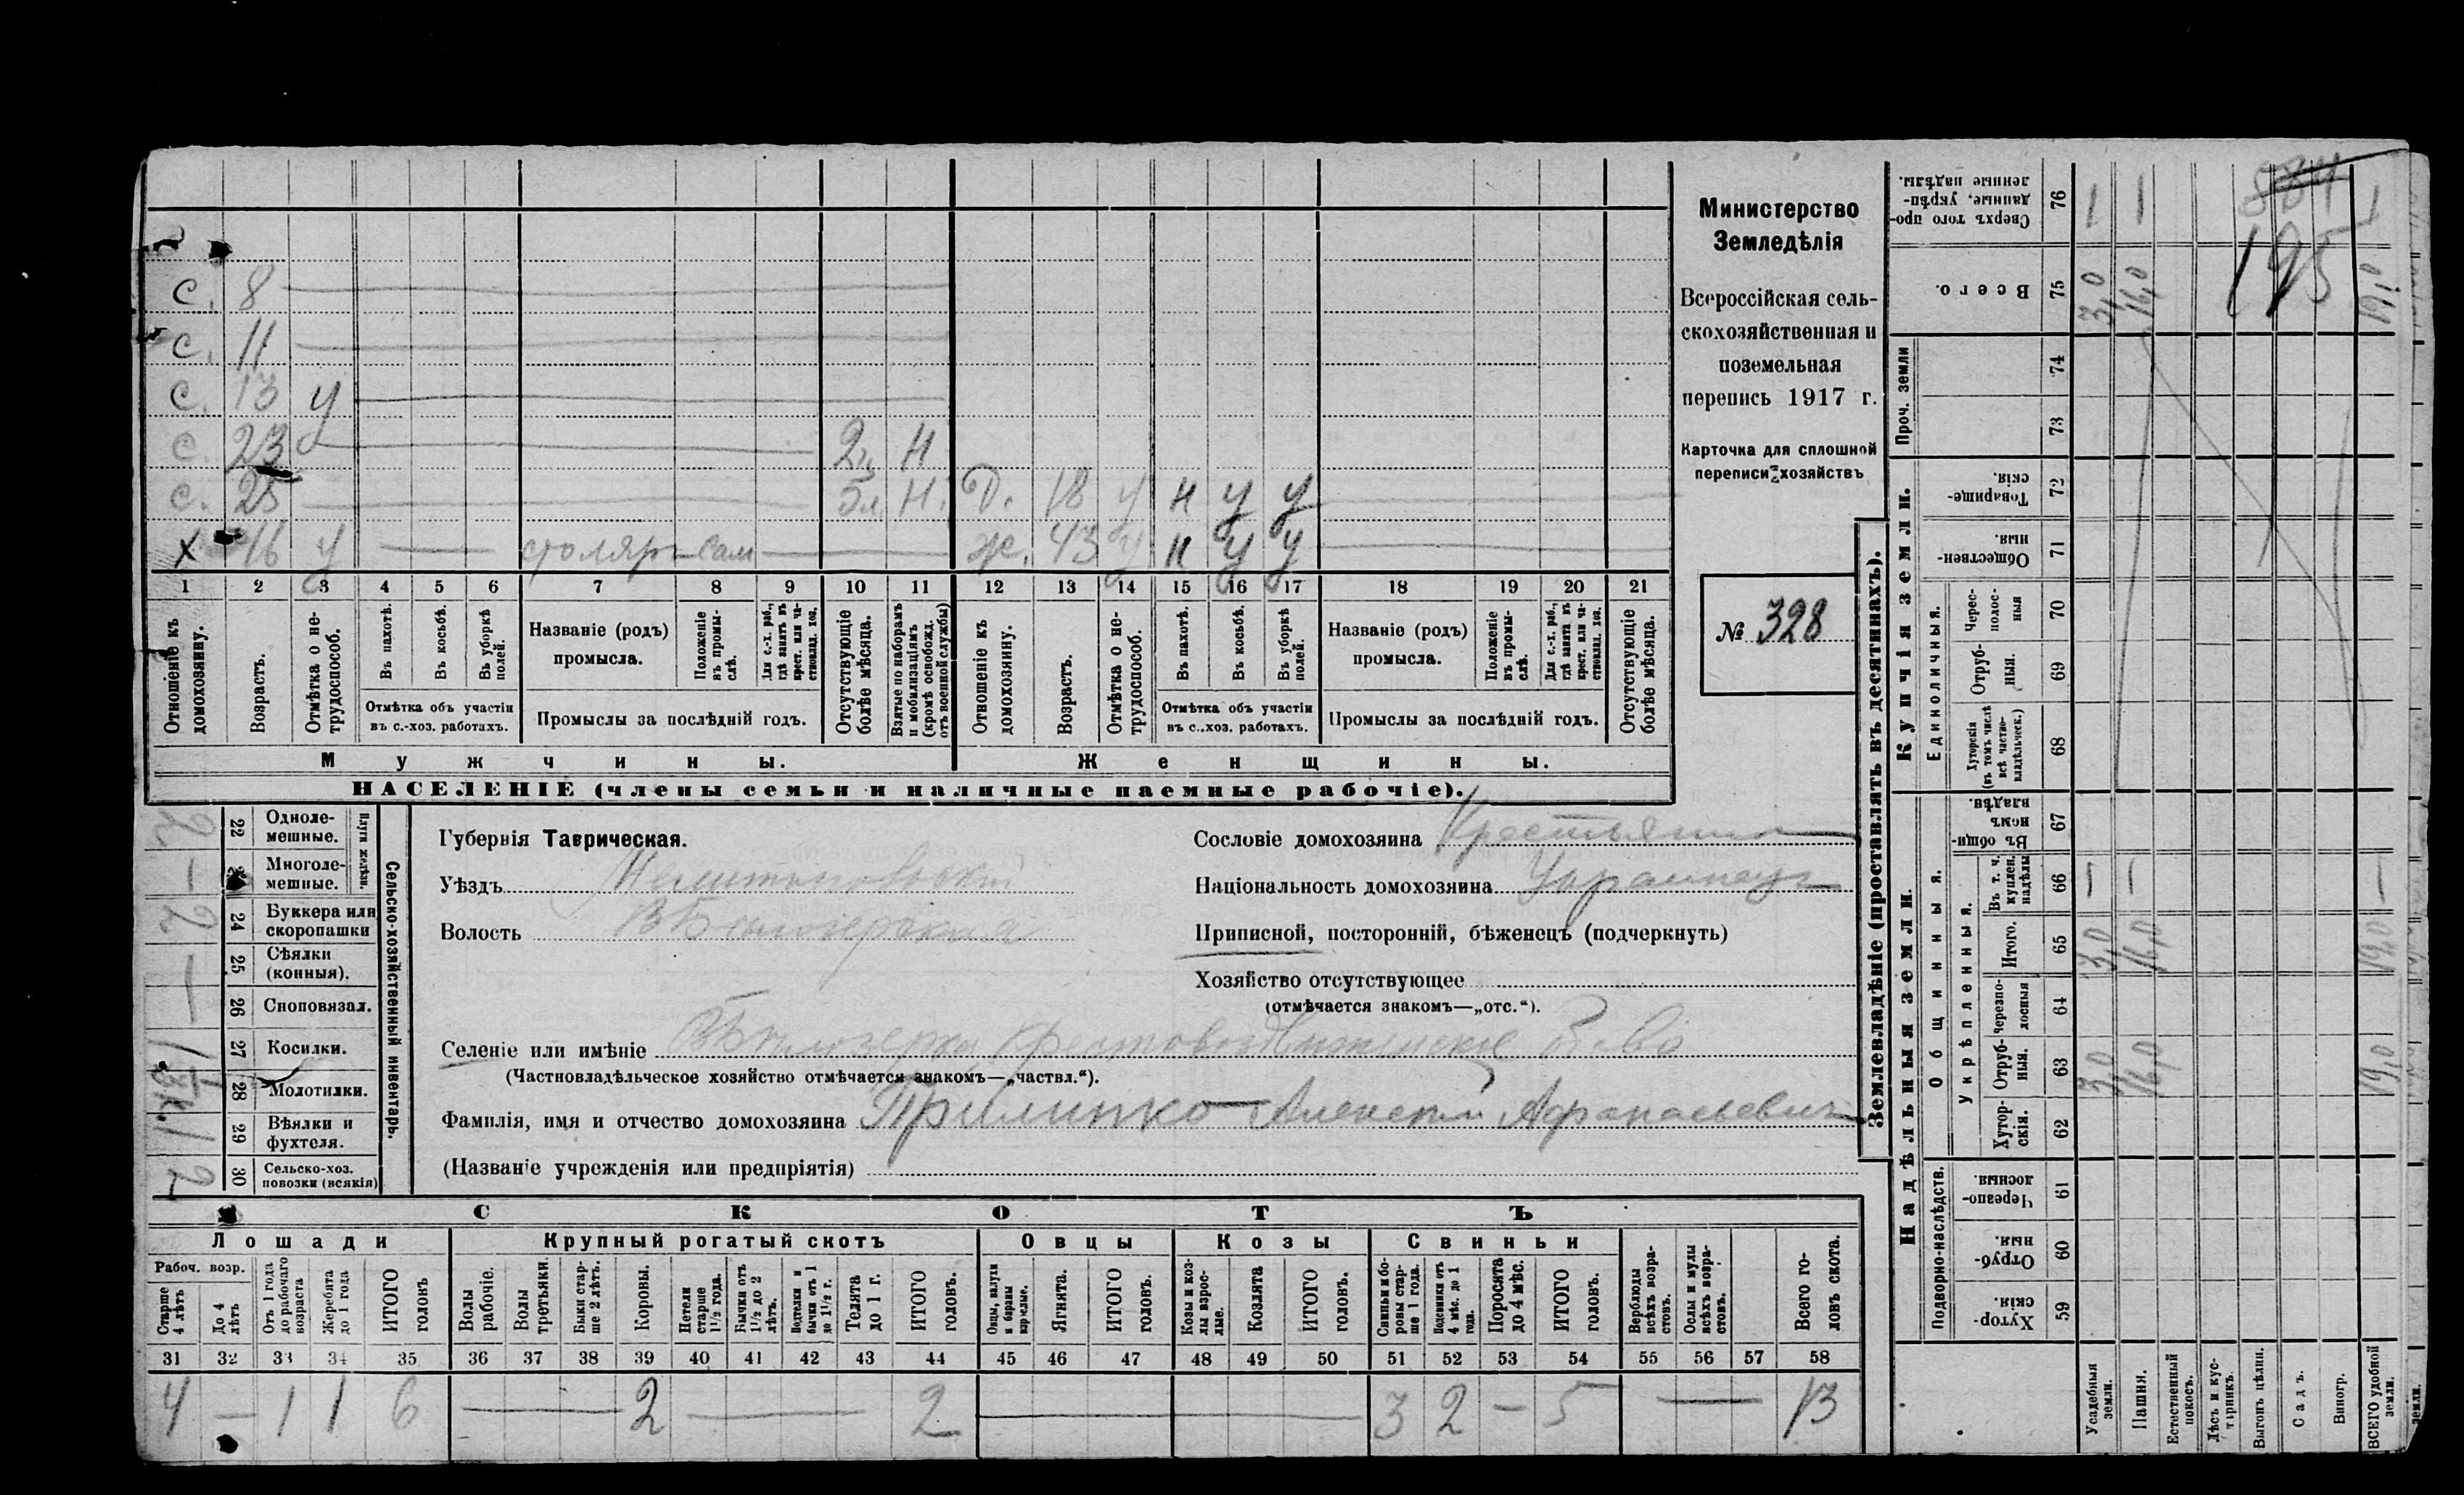 Министерство
Земледѣлія
Всероссійская сель-
скохозяйственная и
поземельная
перепись 1917 г.
Карточка для сплошной
переписи хозяйствъ
№ 328
с. 8
с. 11
с. 13 у
с. 23 2 Н
с. 25 Н. Д. 18 у н у у
х 46 у — столяръ сам — ж. 43 у н у у
1 2 3 4 5 6 7 8 9 10 11 12 13 14 15 16 17 18 19 20 21
Отношеніе къ домохозяину.
Возрастъ.
Отмѣтка о не-трудоспособ.
Въ пахотѣ.
Въ косьбѣ.
Въ уборкѣ полей.
Отмѣтка объ участіи
въ с.-хоз. работахъ.
Названіе (родъ)
промысла.
Положеніе въ промы-слѣ.
Для с.-х. раб., гдѣ занятъ въ крест. или ча-стновлад. хоз.
Промыслы за послѣдній годъ.
Отсутствующіе болѣе мѣсяца.
Взятые по наборамъ и мобилизаціямъ (кромѣ освобожд. отъ военной службы)
Отношеніе къ домохозяину.
Возрастъ.
Отмѣтка о не-трудоспособ.
Въ пахотѣ.
Въ косьбѣ.
Въ уборкѣ полей.
Отмѣтка объ участіи
въ с.-хоз. работахъ.
Названіе (родъ)
промысла.
Положеніе въ промы-слѣ.
Для с.-х. раб., гдѣ занята въ крест. или ча-стновлад. хоз.
Промыслы за послѣдній годъ.
Отсутствующіе болѣе мѣсяца.
Мужчины. Женщины.
НАСЕЛЕНІЕ (члены семьи и наличные наемные рабочіе).
Сельско-хозяйственный инвентарь.
Плуги желѣзн.
22 Одноле-мешные. 2
Многоле-мешные. —
24 Буккера или скоропашки 2
25 Сѣялки (конныя). —
26 Сноповязал. —
27 Косилки. 1
28 Молотилки.
29 Вѣялки и фухтеля. 1
30 Сельско-хоз. повозки (всякія) 2
Губернія Таврическая.
Уѣздъ Мелитопольскій
Волость В Бѣлозерская
Сословіе домохозяина Крестьянинъ
Національность домохозяина Украинецъ
Приписной, посторонній, бѣженецъ (подчеркнуть)
Хозяйство отсутствующее
(отмѣчается знакомъ—„отс.“).
Селеніе или имѣніе Бѣлозерка Крестовоздвиженское
(Частновладѣльческое хозяйство отмѣчается знакомъ—„частвл.“).
Фамилія, имя и отчество домохозяина Прилипко Алексѣй Афанасьевич
(Названіе учрежденія или предпріятія)
СКОТЪ
Лошади Крупный рогатый скотъ Овцы Козы Свиньи
Рабоч. возр.
Старше 4 лѣтъ
До 4 лѣтъ
Отъ 1 года до рабочаго возраста
Жеребята до 1 года
ИТОГО головъ
Волы рабочіе.
Волы третьяки.
Быки стар-ше 2 лѣтъ.
Коровы.
Нетели старше 1½ года.
Бычки отъ 1½ до 2 лѣтъ.
Подтелки и бычки отъ 1 до 1½ г.
Телята до 1 г.
ИТОГО головъ.
Овцы, валухи и бараны взрослые.
Ягнята.
ИТОГО головъ.
Козы и коз-лы взрос-лые.
Козлята
ИТОГО головъ.
Свиньи и бо-ровы стар-ше 1 года.
Подсвинки отъ 4 мѣс. до 1 года.
Поросята до 4 мѣс.
ИТОГО головъ.
Верблюды всѣхъ возра-стовъ.
Ослы и мулы всѣхъ возра-стовъ.
Всего го-ловъ скота.
31 32 33 34 35 36 37 38 39 40 41 42 43 44 45 46 47 48 49 50 51 52 53 54 55 56 57 58
4 — 1 1 6 — 2 — 2 — 3 2 — 5 — 13
Землевладѣніе (проставлять въ десятинахъ).
Надѣльныя земли. Купчія земли.
Проч. земли
Общинныя.
Укрѣпленныя.
Подворно-наслѣдств.
Единоличныя.
Сверхъ того про-данные, укрѣп-ленные надѣлы. 76
Всего. 75 3,0 16,0 19,0
74
73
Товарище-скія. 72
Обществен-ныя. 71
Черес-полос-ныя 70
Отруб-ныя. 69
Хуторскія (въ томъ числѣ всѣ частно-владѣльческ.) 68
Въ общин-номъ владѣн. 67
Въ т. ч. куплен. надѣлы 66
Итого. 65 3,0 16,0 19,0
Черезпо-лосныя 64
Отруб-ныя. 63 3,0 16,0 19,0
Хутор-скія. 62
Черезпо-лосныя. 61
Отруб-ныя. 60
Хутор-скія. 59
Усадебныя земли.
Пашня.
Естественный покосъ.
Лѣсъ и кус-тарникъ.
Выгонъ цѣлин.
Садъ.
Виногр.
ВСЕГО удобной земли.
195